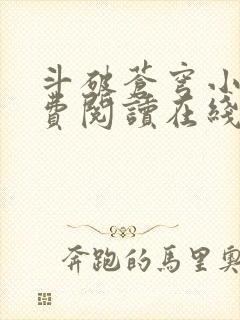 斗破蒼穹小
費閱讀在綫
奔跑的馬里奧